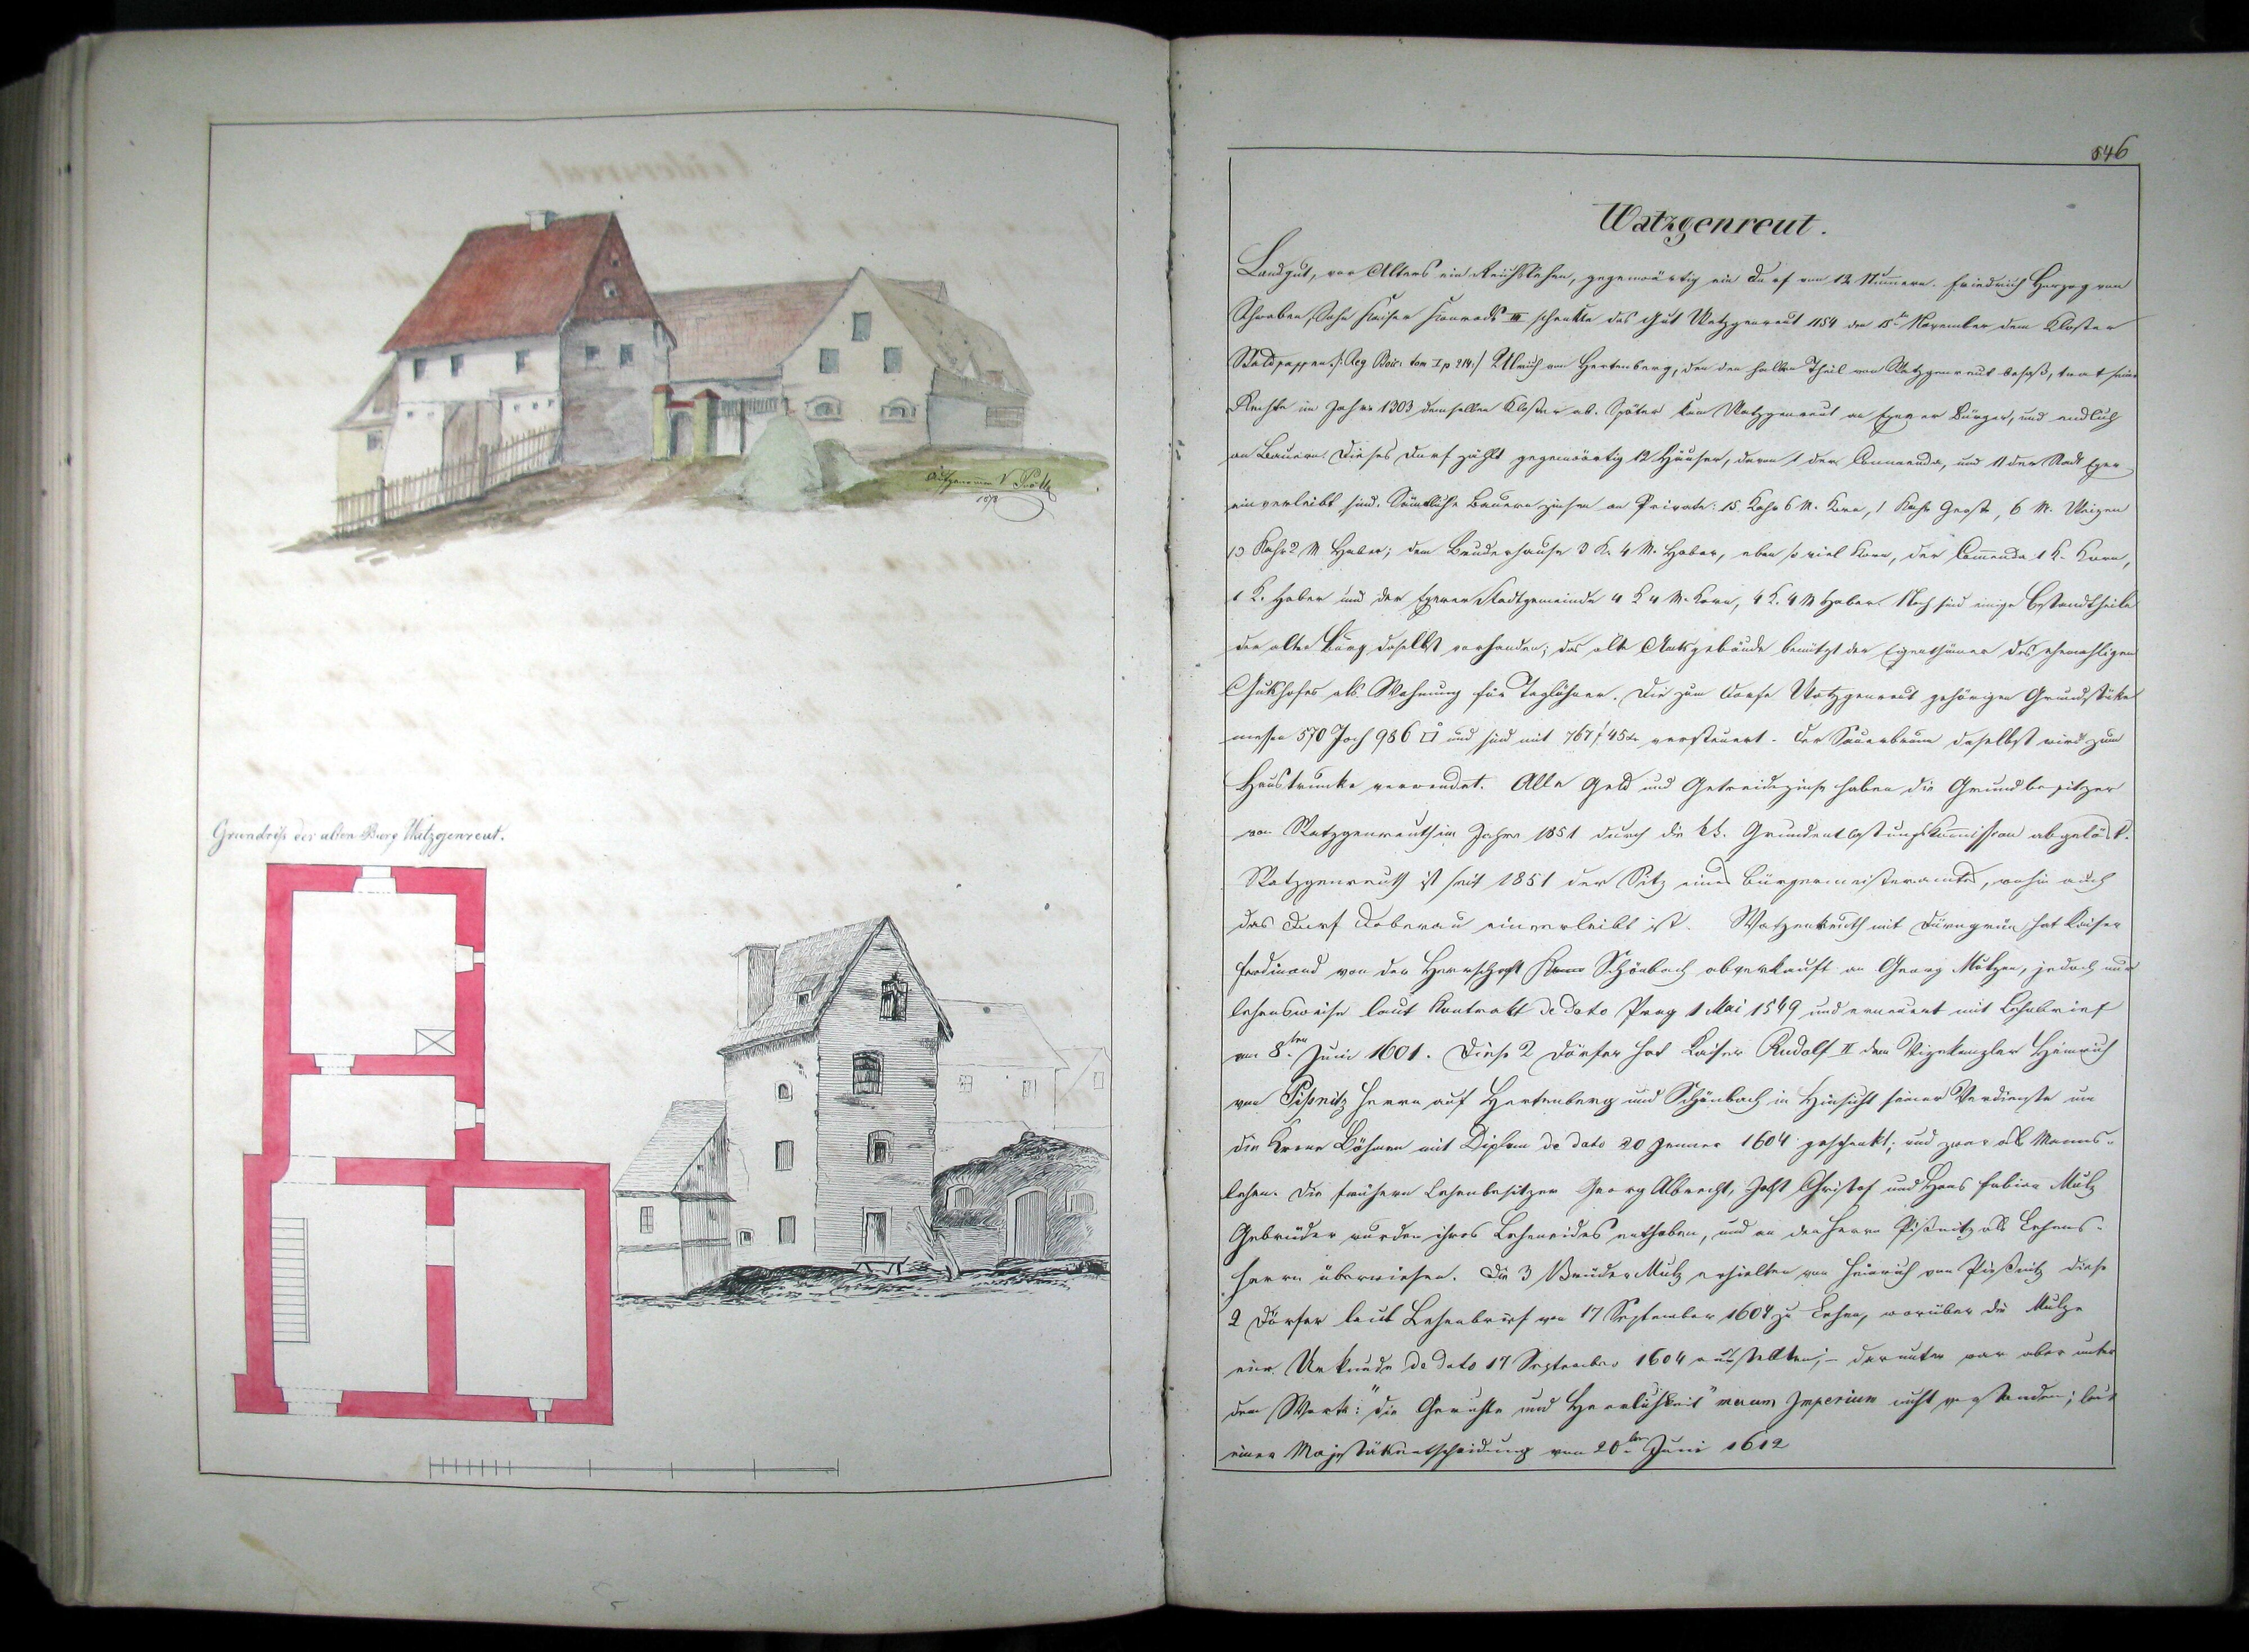 Aufgenommen V. Prökl
1873
Grundriß der alten Burg Watzgenreut.
546
Watzgenreut.
Landgut, vor Alters ein Reichslehen, gegenwärtig ein Dorf von 12 Numern. Friedrich Herzog von
Schwaben, Sohn Kaiser Konrads III schenkte das Gut Watzgenreut 1154 den 15ten November dem Kloster
Waldsassen. /: Reg Boic: tom I p 214:/ Ulrich von Hertenberg, der den halben Theil von Watzgenreut besaß, trat seine
Rechte im Jahre 1303 demselben Kloster ab. Später kam Watzgenreut an Egerer Bürger, und endlich
an Bauern. Dieses Dorf zählt gegenwärtig 12 Häuser, davon 1 der Commenda, und 11 der Stadt Eger
einverleibt sind. Sämtliche Bauern zinsen an Private: 15 Kahr 6 M. Korn, 1 Kahr Gerste, 6 M. Weizen
13 Kahr 2 M Haber; dem Bruderhause 3 K. 4 M. Haber, eben so viel Korn, der Comenda 1 K. Korn,
1 K. Haber und der Egerer Stadtgemeinde 4 K 4 M. Korn, 4 K. 4 M Haber. Noch sind einige Bestandtheile
der alten Burg daselbst vorhanden; das alte Amtsgebäude benützt der Eigenthümer des ehemahligen
Gutshofes als Wohnung für Taglöhner. Die zum Dorfe Watzgenreut gehörigen Grundstücke
messen 570 Joch 986 □° und sind mit 767 f 45 kr versteuert. Der Sauerbrunn daselbst wird zum
Haustrunke verwendet. Alle Geld und Getreidezinse haben die Grundbesitzer
von Watzgenreuth im Jahre 1851 durch die k.k. Grundentlastungskommission abgelöst.
Watzgenreuth ist seit 1851 der Sitz eines Bürgermeisteramtes, wohin auch
das Dorf Doberau einverleibt ist. Watzenreuth mit Dürngrün hat Kaiser
Ferdinand von der Herrschaft Schönbach abverkauft an Georg Mulzen, jedoch nur
lehensweise laut Kontrakt de dato Prag 1 Mai 1549 und erneuert mit Lehnbrief
vom 8ten Juni 1601. Diese 2 Dörfer hat Kaiser Rudolf II dem Vizekanzler Heinrich
von Pisnitz Herrn auf Hertenberg und Schönbach in Hinsicht seiner Verdienste um
die Krone Böhmen mit Diplom de dato 20 Jenner 1604 geschenkt; und zwar als Manns-
lehen. Die frühern Lehenbesitzer Georg Albrecht, Jobst Christof und Hans Fabian Mulz
Gebrüder wurden ihres Leheneides enthoben, und an den Herrn Pißnitz als Lehens-
herrn überwiesen. Die 3 Brüder Mulz erhielten von Heinrich von Pißnitz diese
2 Dörfer laut Lehenbrief vom 17 September 1604 zu Lehen, worüber die Mulze
eine Urkunde de dato 17 September 1604 ausstellten; – darunter war aber unter
dem Worte: "die Gerichte und Herrlichkeit" merum Imperium nicht verstanden; laut
einer Majestätsentscheidung vom 20ten Juni 1612